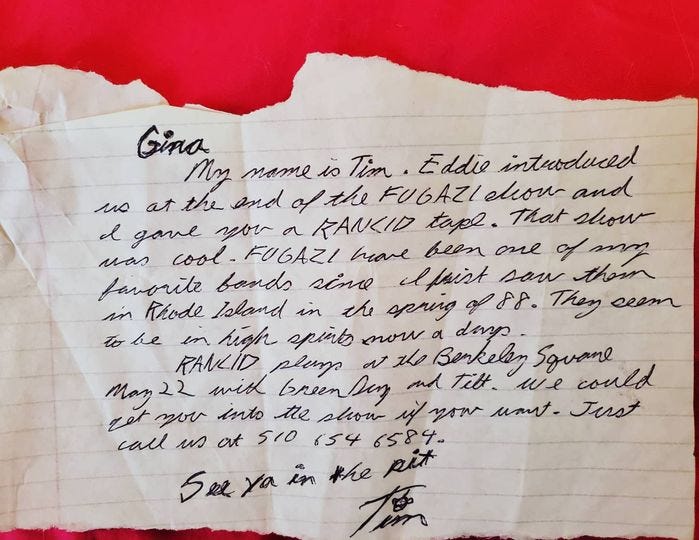 Gina
My name is Tim. Eddie introduced
us at the end of the FUGAZI show and
I gave you a RANCID tape. That show
was cool. FUGAZI have been one of my
favorite bands since I first saw them
in Rhode Island in the spring of 88. They seem
to be in high spirits now a days.
RANCID plays at the Berkeley Square
May 22 with Green Day and Tilt. We could
get you into the show if you want. Just
call us at 510 654 6584.
See ya in the pit
Tim